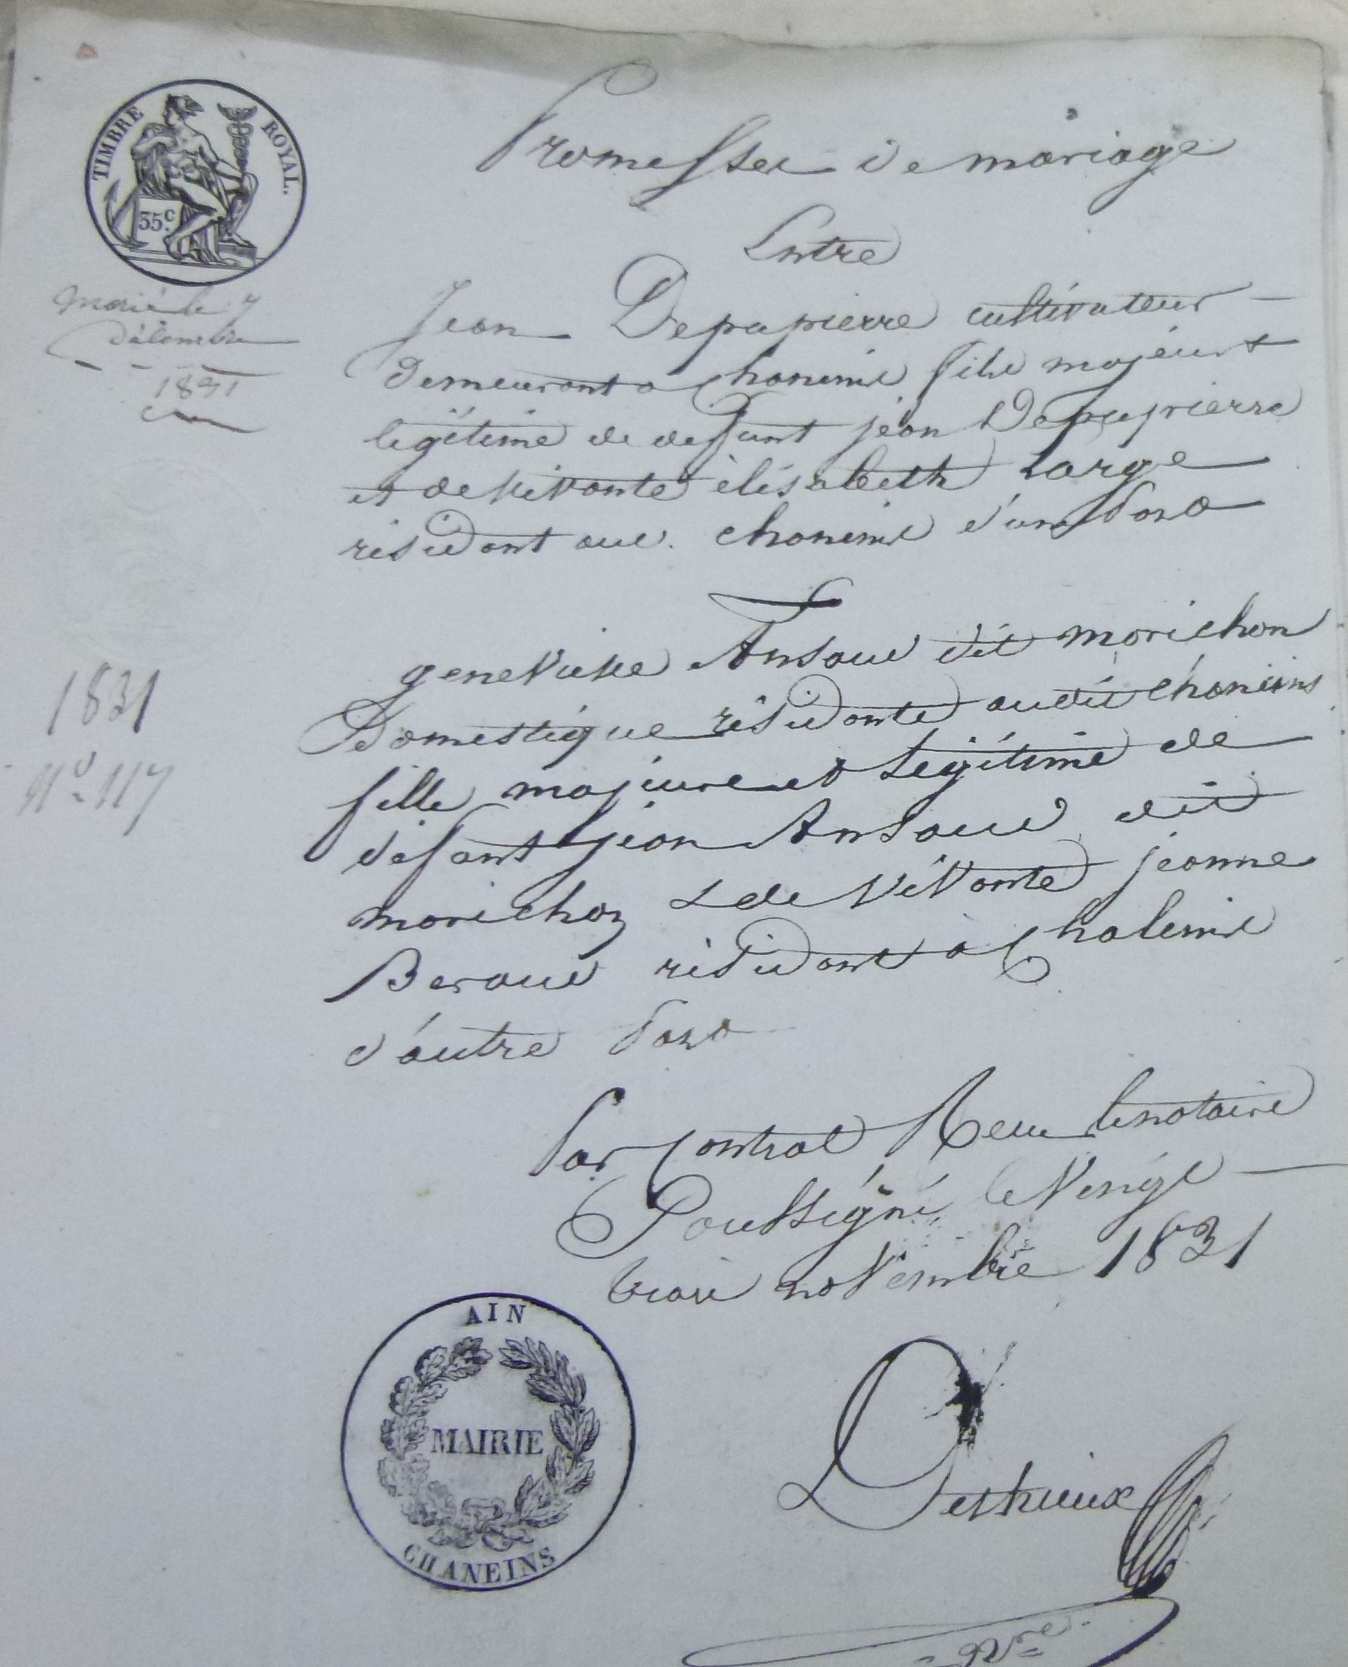 TIMBRE ROYAL.
35c.
Promesses de mariage
Entre
marié le 7
Décembre
1831
Jean Depapierre cultivateur
demeurant a Chaneins fils majeur &
legitime de defunt jean Depapierre
et de vivante élésabeth Large
résidant aud. chaneins d'une Part
genevieve Ansaud dit morichon
Domestique résidante audit chaneins
fille majeure et Légitime de
défant jéan Ansaud dit
morichon & de vivante jeanne
Beraud résidant a Chaleins
d'autre Part
1831
No. 117
Par Contrat Reçu le notaire
le Vingt
trois novembre 1831
AIN
MAIRIE
CHANEINS